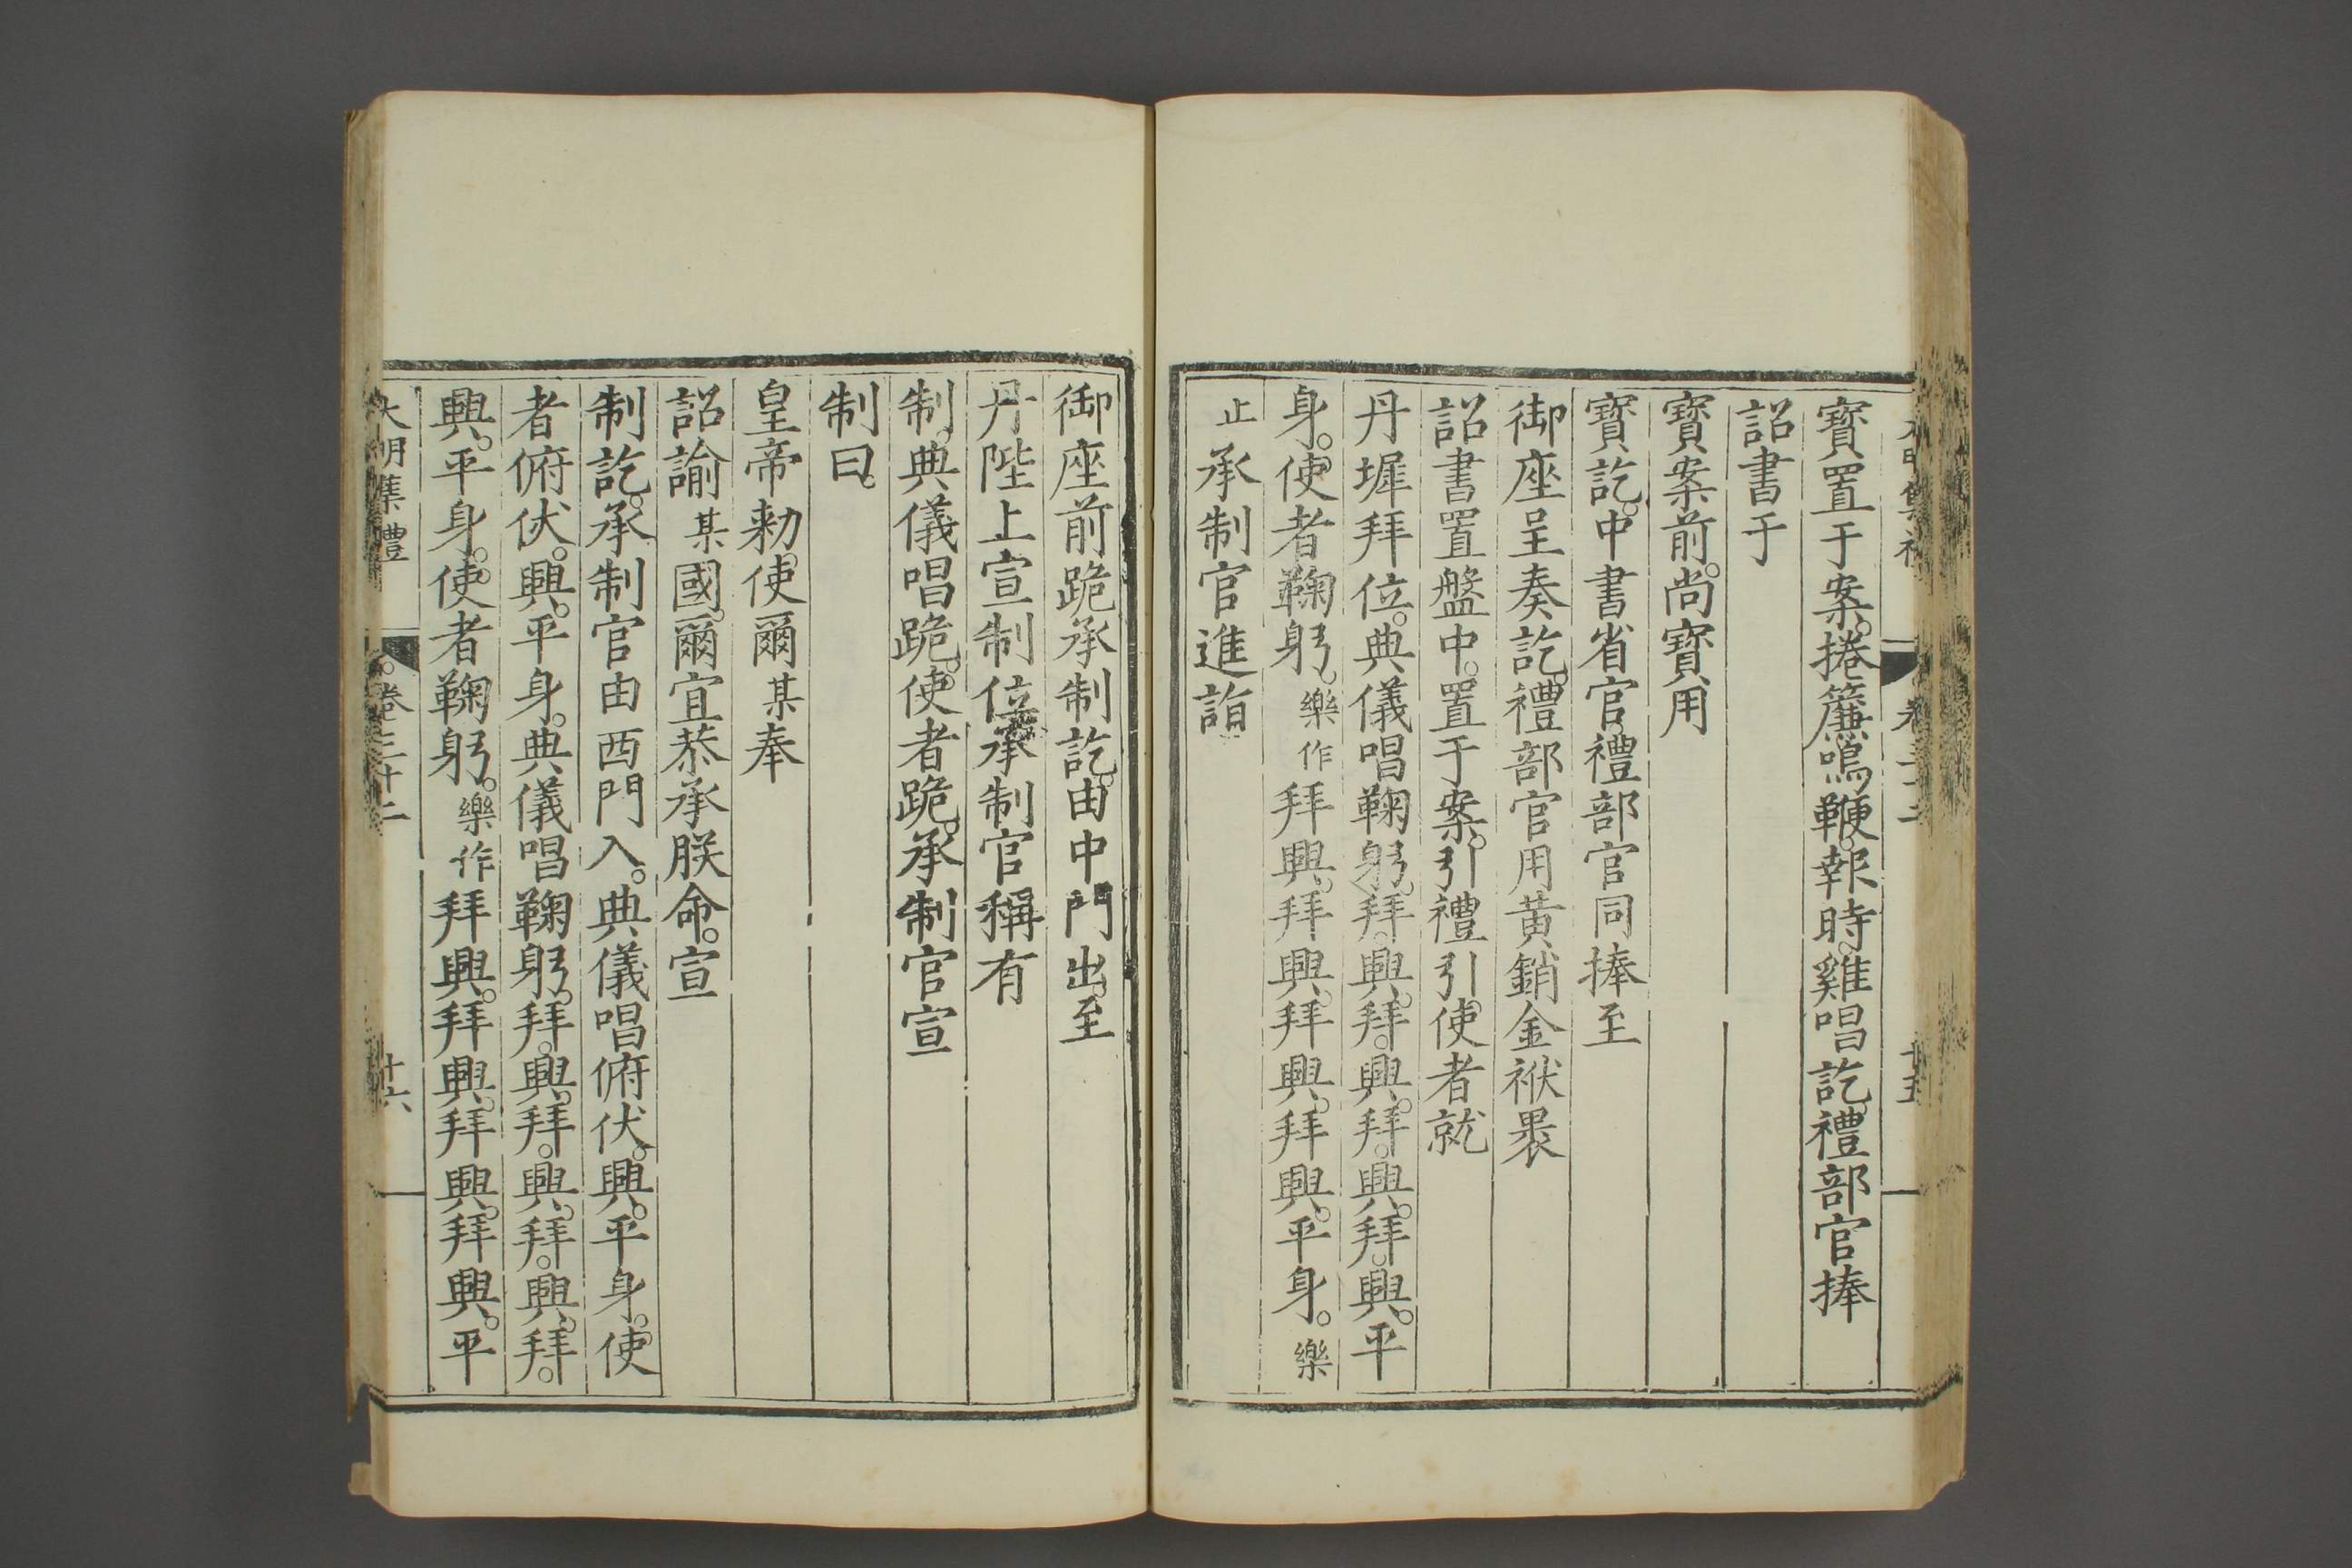 寶置于案。捲簾。鳴鞭。報時。雞唱訖。禮部官捧
詔書于
寶案前。尚寶用
寶訖。中書省官。禮部官同捧至
御座呈奏訖。禮部官用黄銷金袱褁
詔書置盤中。置于案。引禮引。使者就
丹墀拜位。典儀唱鞠躬。拜。興。拜。興。拜。興。拜。興。平
身。使者鞠躬。樂作拜興。拜興。拜興。拜興。平身。樂
止承制官進詣
御座前跪承制訖。由中門出。至
丹陛上宣制位。承制官稱有
制。典儀唱跪。使者跪。承制官宣
制曰。
皇帝勑。使爾某奉
詔諭某國。爾宜恭承朕命。宣
制訖。承制官由西門入。典儀唱俯伏。興。平身。使
者俯伏。興。平身。典儀唱鞠躬。拜。興。拜。興。拜。興。拜。
興。平身。使者鞠躬。樂作拜興。拜興。拜興。拜興。平
大明集禮 卷三十二 十六